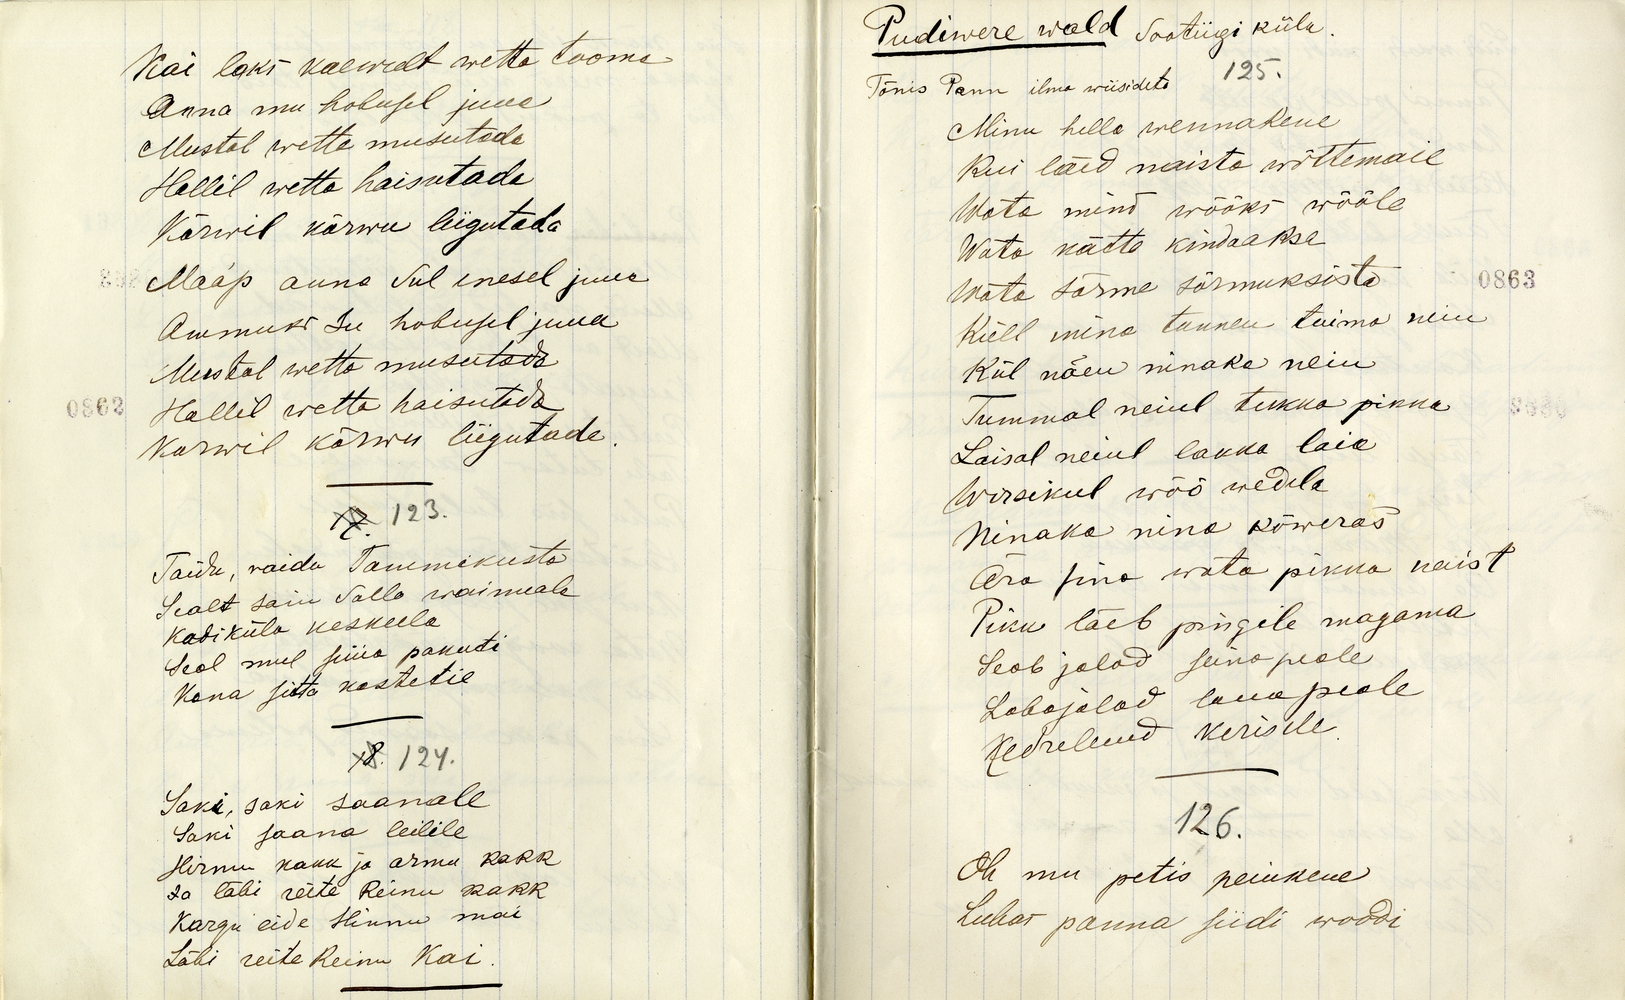 Kai laks kaewult wetta tooma
Anna mu hobusel juua
Mustal wetta musutada
Hallil wetta haisutada
Kõrwil kõrwu liigutada
Maap anna Sul enesel juua
Ammuks Su hobusel juua
Mustal wetta musutada
Hallil wetta haisutada
Korwil kõrwu liigutada.
123.
Taidu, raidu Tammikusta
Sealt sain Salla waimuale
Kadiküla keskeela
Seal mul süüa pakuti
Kana sitta kastetie
18. 124.
Saki, saki saanale
Saki saana leilile
Hirmu kakk ja armu kakk
Ja läbi reite Reinu kakk
Kargu eide Hinnu mai
Läbi reite Reinu Kai.
Pudiwere wald Sootiigi küla.
125.
Tõnis Pann ilma wiisideta
Minu hella wennakene
Kui läid naista wõttemaie
Wata mind wööks wööle
Wata kätta kindaaksa
Wata sõrme sõrmuksista
0863
Küll mina tunnen tuima neiu
Kül näen ninaka neiu
Tummal neiul tukka pikka
Laisal neiul lakka laia
Wirsikul wöö wedela
Ninaka nina kõweras
Ära sina wata pikka naist
Piku läeb pingile magama
Seab jalad seina peale
Labajalad laua peale
Kedreluud kerisele.
126.
Oh mu petis peiukene
Lubas panna siidi woodi
0863